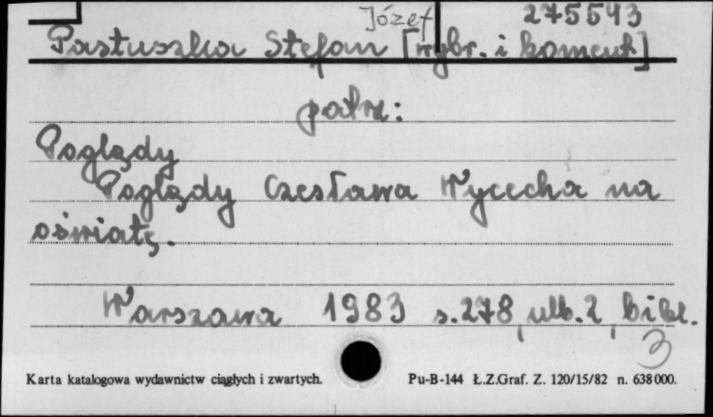 Józef 275543
Pastuszka Stefan [wybr. i koment]
patrz:
Poglądy
Poglądy Czesława Wycecha na
oświatę.
Warszawa 1983 s. 278, nlb. 2, bibl.
3
Karta katalogowa wydawnictw ciągłych i zwartych. Pu-B-144 Ł.Z.Graf. Z. 120/15/82 n. 638 000.